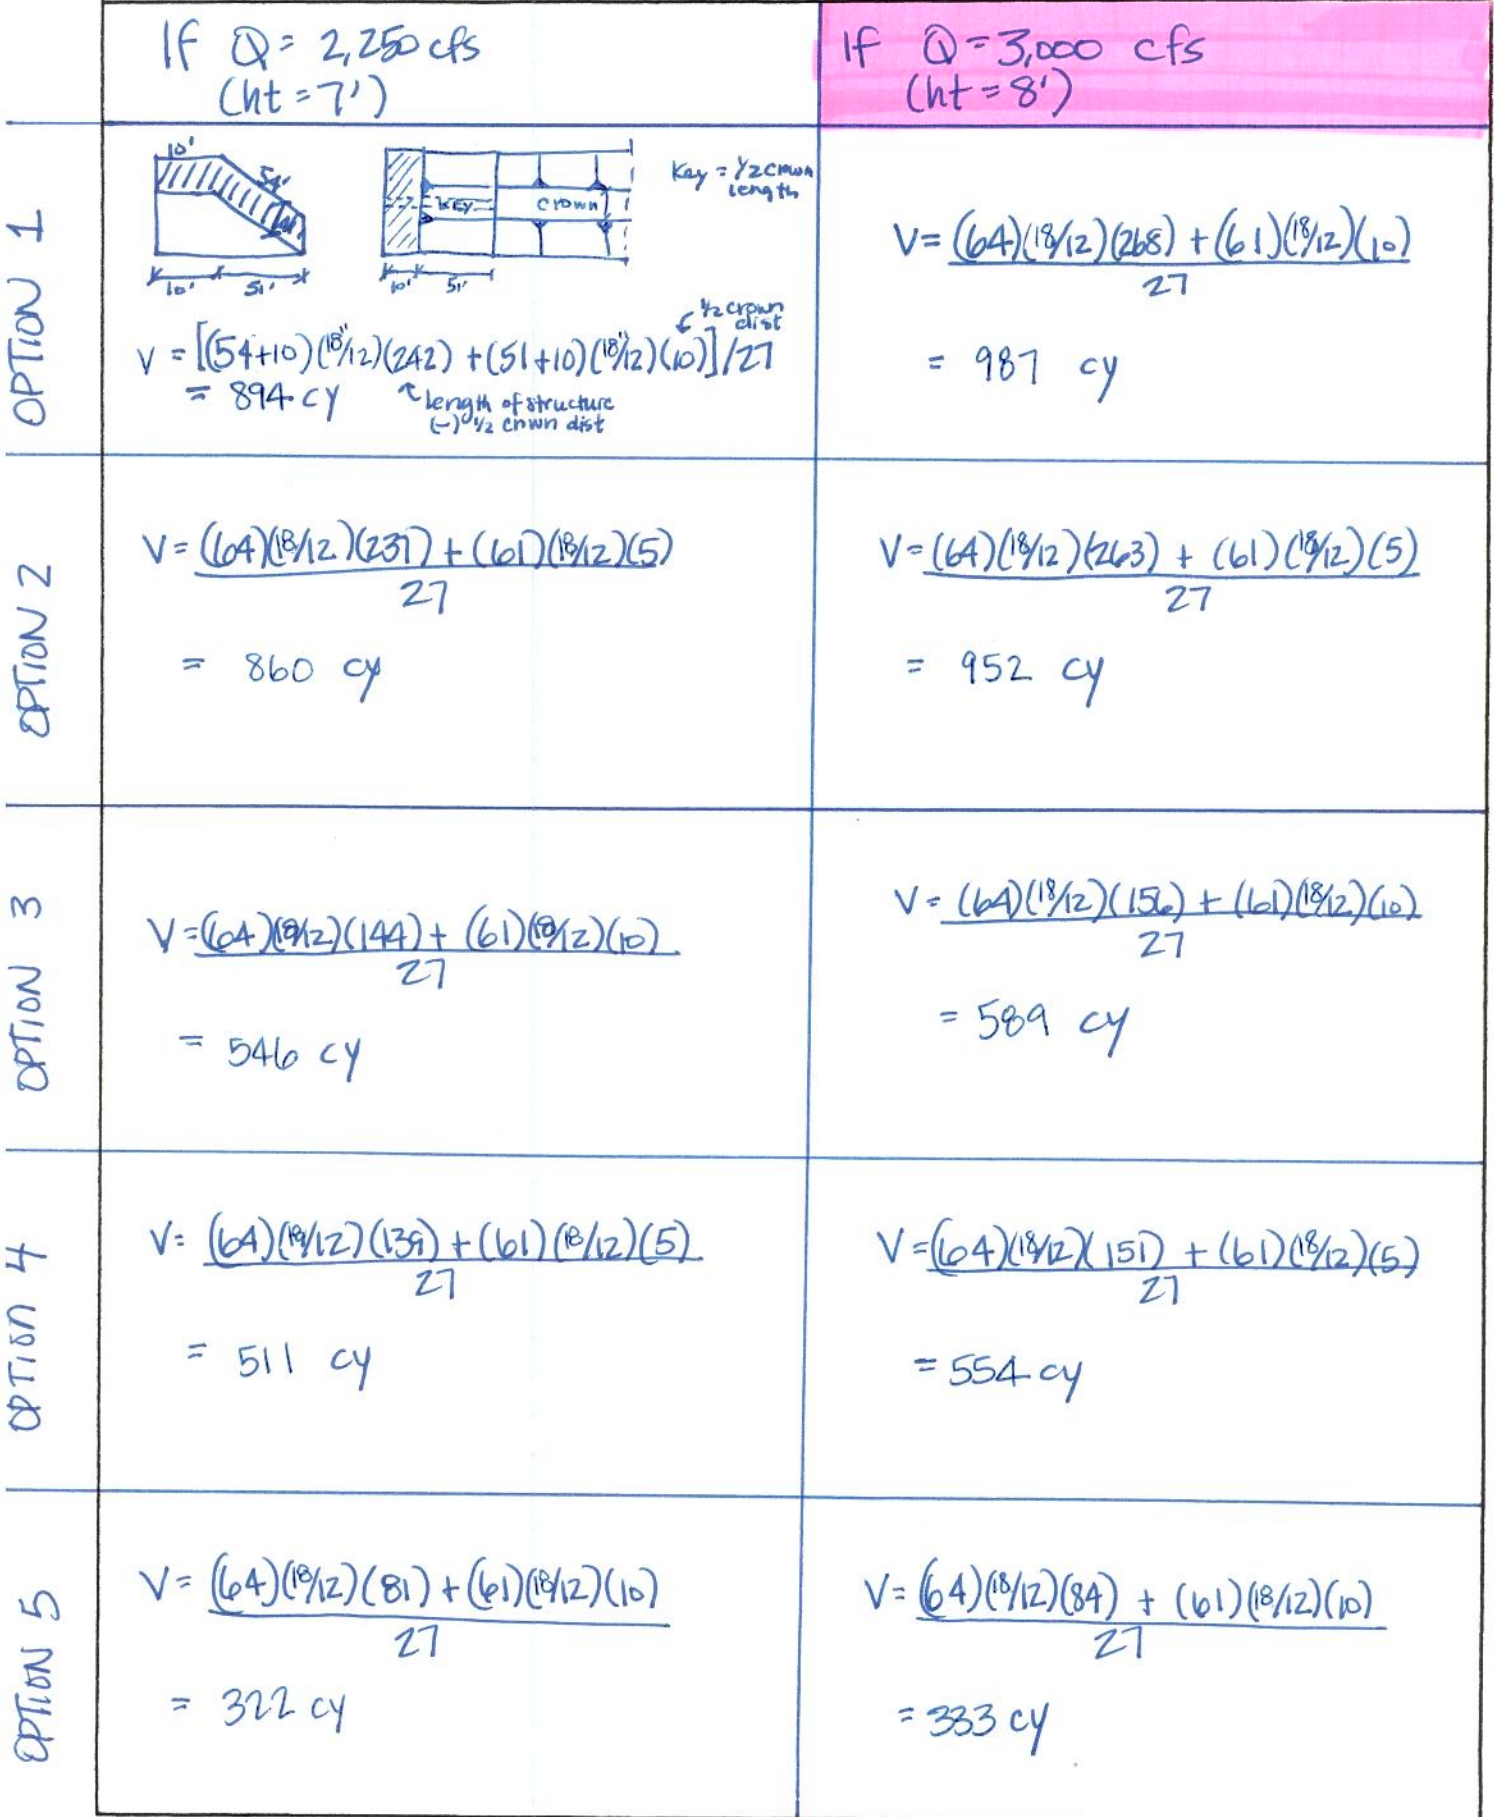 If Q = 2,250 cfs
(ht = 7')
If Q = 3,000 cfs
(ht = 8')
OPTION 1
10'
54'
10' 51'
KEY
crown
10' 51'
Key = 1/2 crown
length
1/2 crown
dist
V = [(54+10)(18"/12)(242) + (51+10)(18"/12)(10)]/27
= 894 cy
length of structure
(-) 1/2 crown dist
V = (64)(18/12)(268) + (61)(18/12)(10)
27
= 987 cy
OPTION 2
V = (64)(18/12)(237) + (61)(18/12)(5)
27
= 860 cy
V = (64)(18/12)(263) + (61)(18/12)(5)
27
= 952 cy
OPTION 3
V = (64)(18/12)(144) + (61)(18/12)(10)
27
= 546 cy
V = (64)(18/12)(156) + (61)(18/12)(10)
27
= 589 cy
OPTION 4
V = (64)(18/12)(139) + (61)(18/12)(5)
27
= 511 cy
V = (64)(18/12)(151) + (61)(18/12)(5)
27
= 554 cy
OPTION 5
V = (64)(18/12)(81) + (61)(18/12)(10)
27
= 322 cy
V = (64)(18/12)(84) + (61)(18/12)(10)
27
= 333 cy